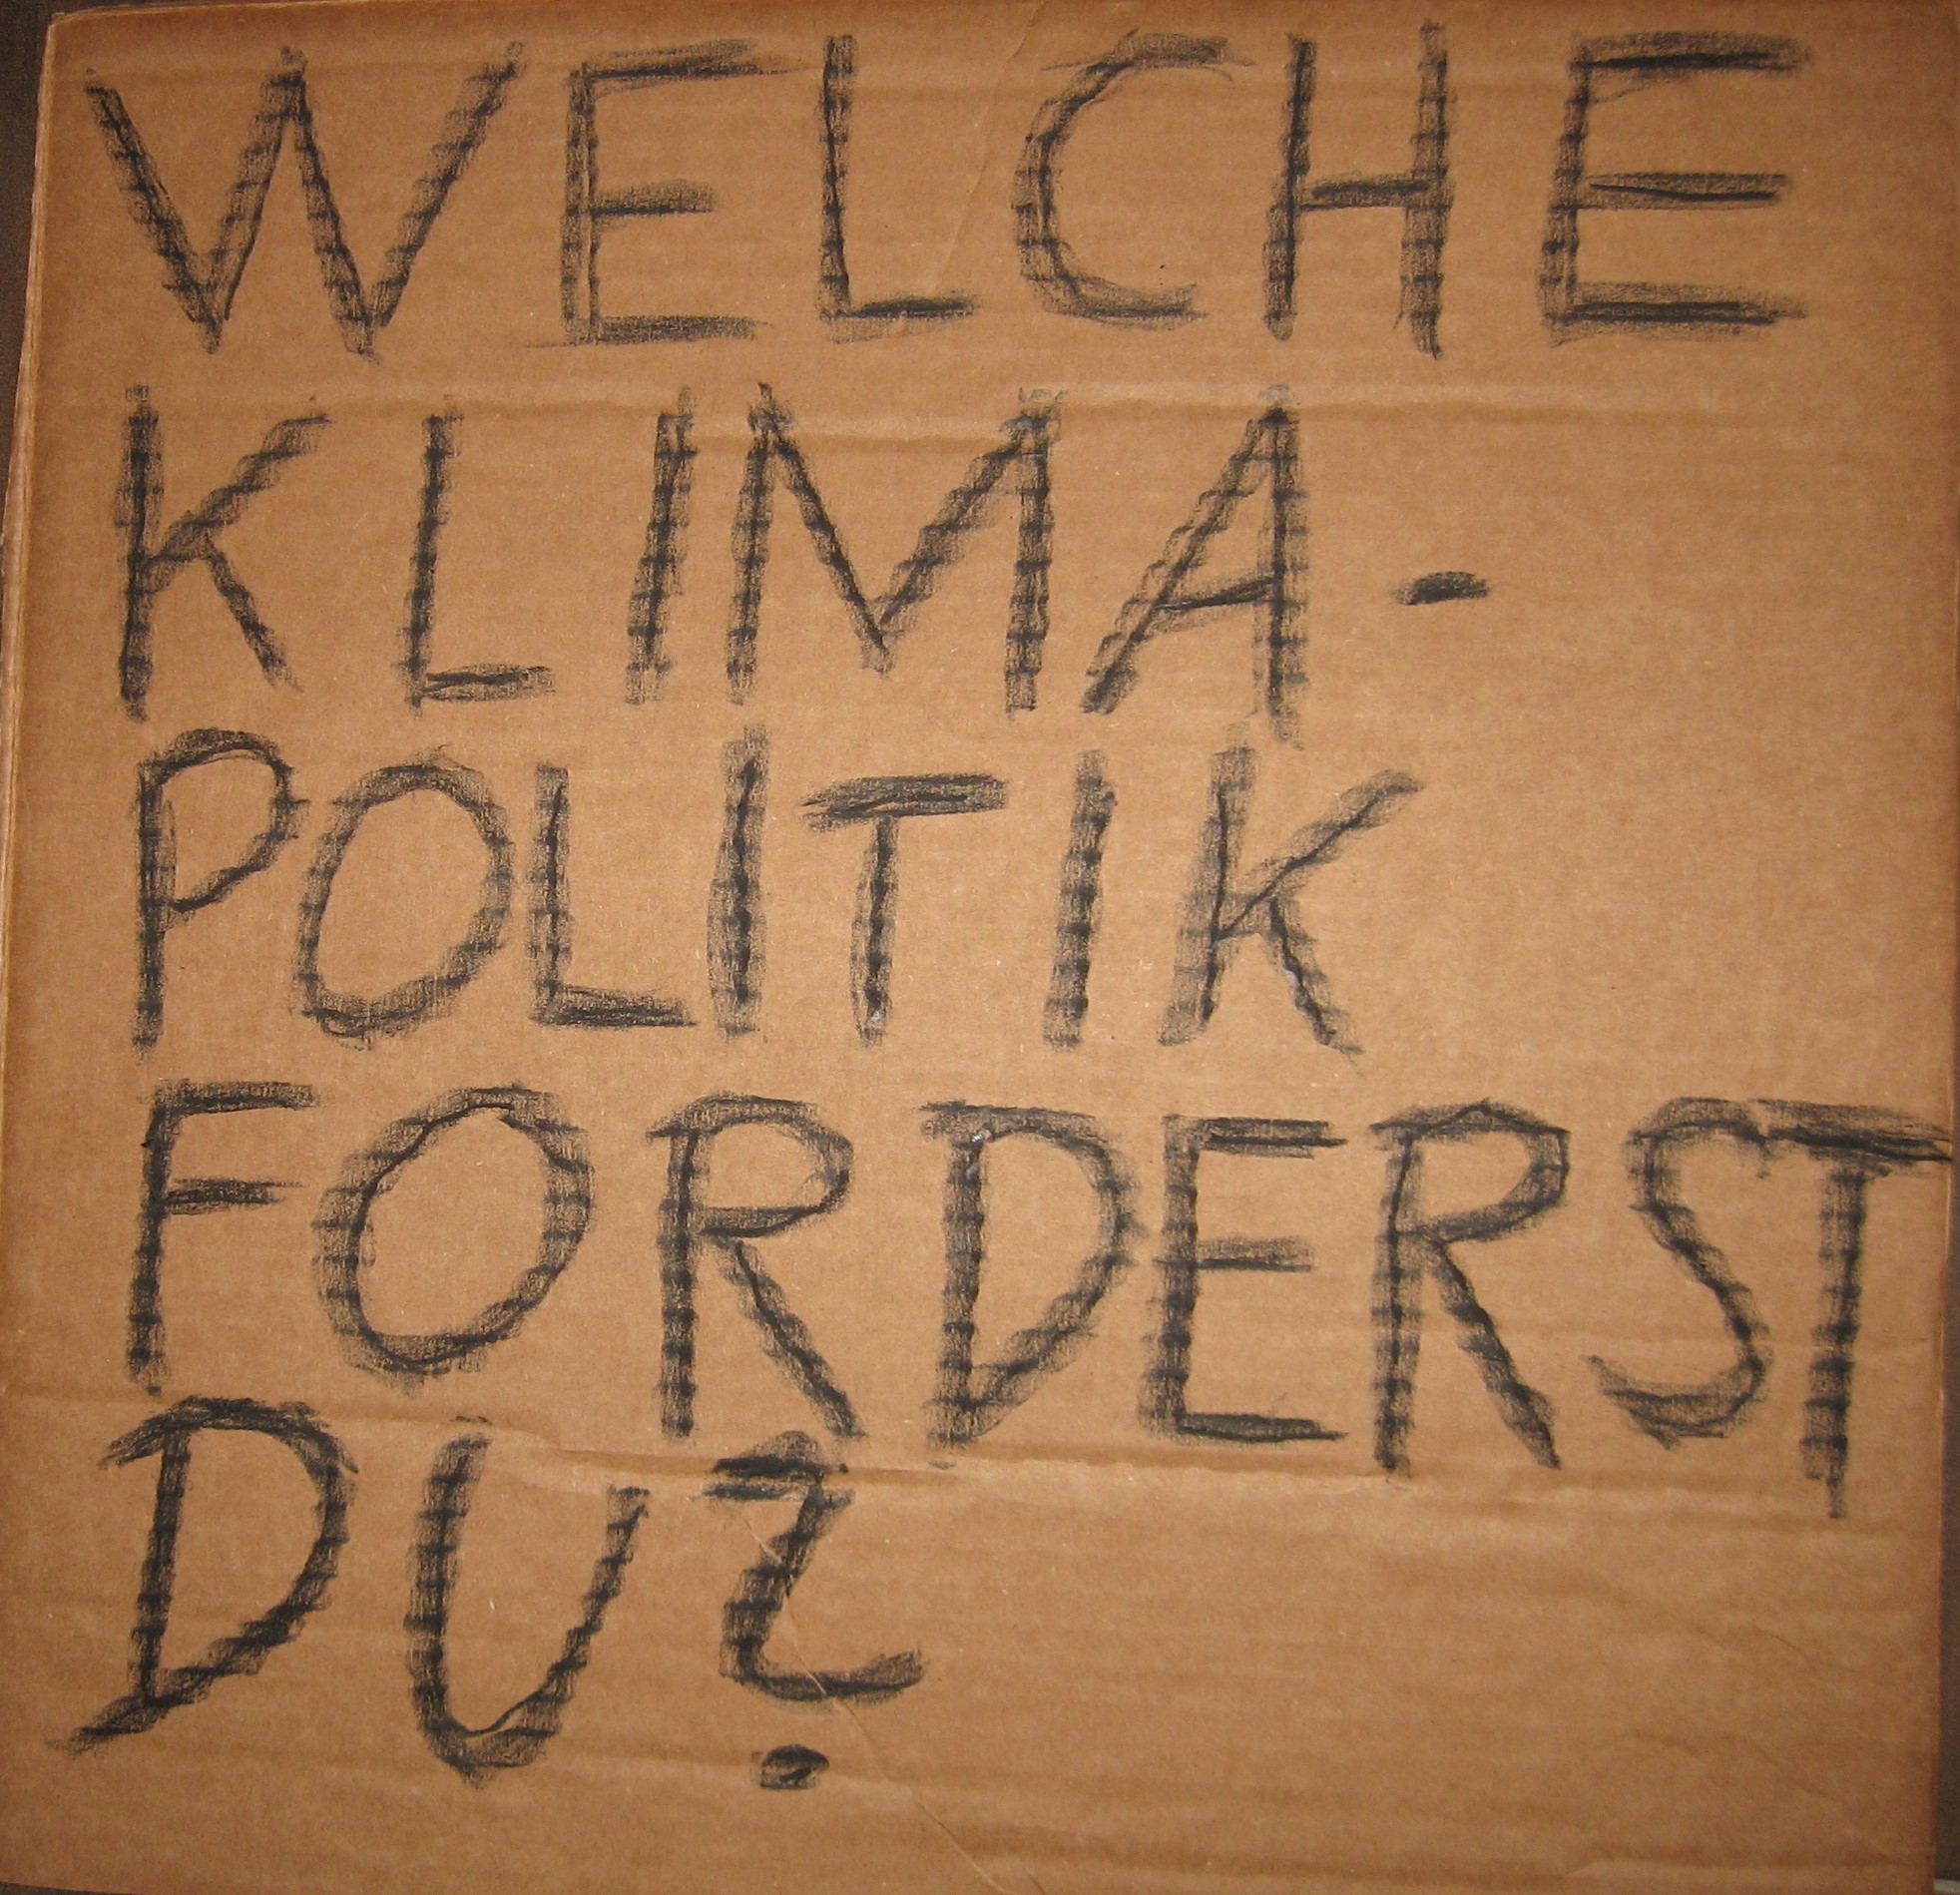 WELCHE
KLIMA-
POLITIK
FORDERST
DU?